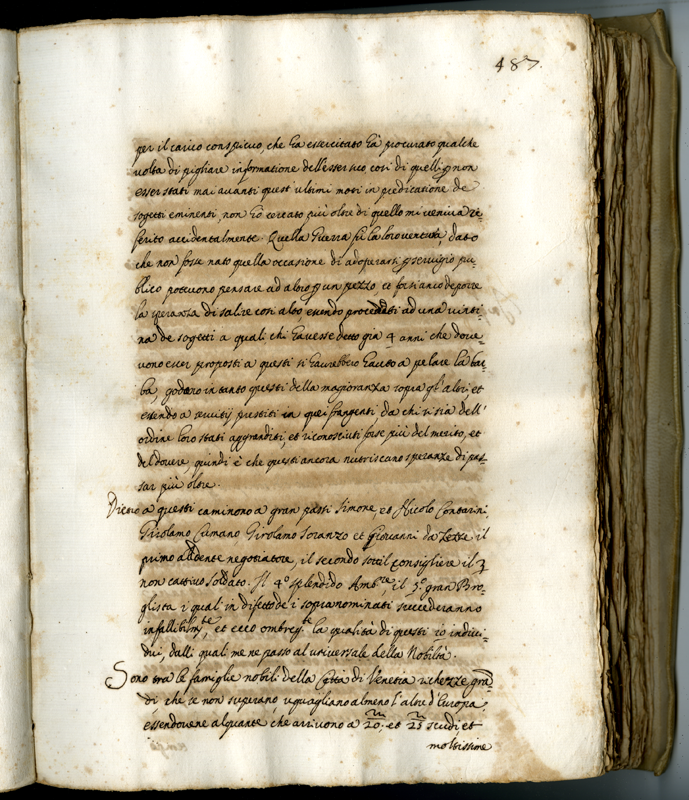 487.
per il carico conspicuo, che hà essercitato hà procurato qualche
volta di pigliare informatione dell'esser suo così di quelli non
esser stati mai auanti quest ultimi moti in predicatione de
sogetti eminenti, non hò cercato più oltre di quello mi veniua re=
ferito accidentalmente. Quella Guerra fù la loro ventura, dato
che non fosse nato quella occasione di adoperarsi seruigio pu=
blico poteuono pensare ad altro un pezzo et forsi anco deporre
la speranza di salire così alto essendo proceduti ad una uinti=
na de sogetti a quali chi hauesse detto già 4 anni che doue=
uono esser proposti a questi si haurebbero hauuto a pelare la bar=
ba, godono intanto questi della magioranza sopra gl'altri, et
essendo a seruitij prestiti in quei frangenti da chi si sia dell'
ordine loro stati aggranditi, et riconosciuti forse più del merito, et
del douere, quindi è che questi ancora nutriscano speranze di pas=
sar più oltre.
Dietro a questi caminono a gran passi Simone, et Nicolo Contarini,
Girolamo Cumano Girolamo Soranzo et Giovanni da Lezze il
primo negotiatore, il secondo sottil consigliere il 3
non cattiuo soldato. Il 4º splendido Ambre, il 5º gran Bro=
glista i quali in difetto de i sopranominati succederanno
infallibilmte, et ecco ombregte la qualità di questi 10 indiui=
dui, dalli quali me ne passo al uniuersale della Nobiltà.
Sono tra le famiglie nobili della Città di Venetia richezze gra
di, che se non superano, uguagliano almeno l'altre d'Europa,
essendouene alquante che arriuono a 20: et 25 scudi et
moltissime